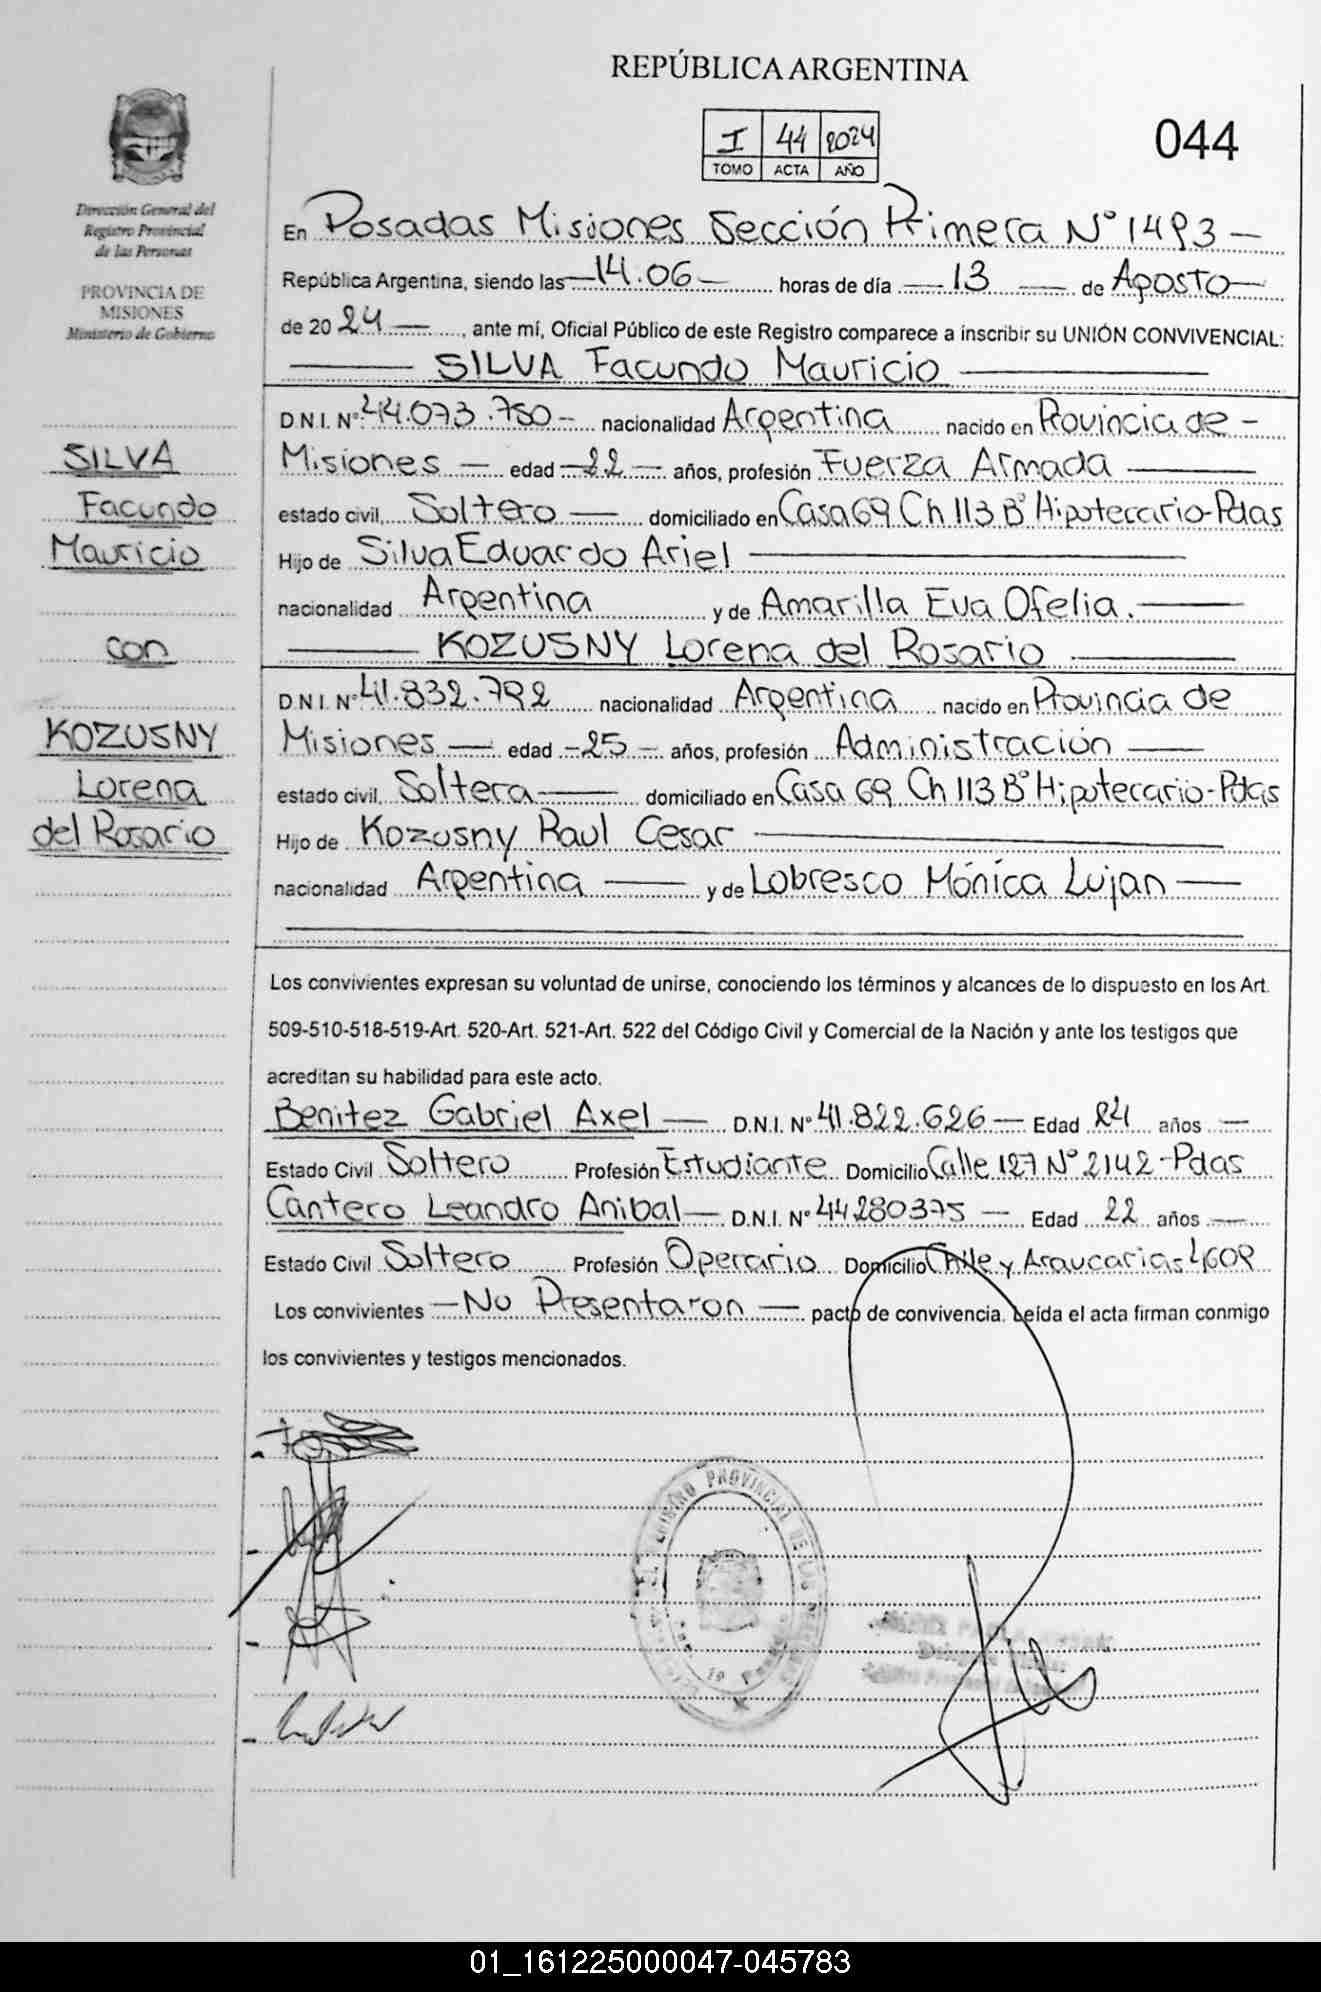 REPÚBLICA ARGENTINA
I 44 2024
TOMO ACTA AÑO
044
Dirección General del
Registro Provincial
de las Personas
PROVINCIA DE
MISIONES
Ministerio de Gobierno
En Posadas Misiones Sección Primera N° 1493 —
República Argentina, siendo las — 14.06 — horas de día — 13 — de Agosto —
de 20 24 — , ante mí, Oficial Público de este Registro comparece a inscribir su UNIÓN CONVIVENCIAL:
— SILVA Facundo Mauricio —
D.N.I. N° 44.073.750 — nacionalidad Argentina nacido en Provincia de —
Misiones — edad — 22 — años, profesión Fuerza Armada —
estado civil, Soltero — domiciliado en Casa 69 Ch 113 B° Hipotecario-Pdas
Hijo de Silva Eduardo Ariel —
nacionalidad Argentina y de Amarilla Eva Ofelia. —
— KOZUSNY Lorena del Rosario —
D.N.I. N° 41.832.792 nacionalidad Argentina nacido en Provincia de
Misiones — edad — 25 — años, profesión Administración —
estado civil, Soltera — domiciliado en Casa 69 Ch 113 B° Hipotecario-Pdas
Hijo de Kozusny Raul Cesar —
nacionalidad Argentina — y de Lobresco Mónica Lujan —
SILVA
Facundo
Mauricio
con
KOZUSNY
Lorena
del Rosario
Los convivientes expresan su voluntad de unirse, conociendo los términos y alcances de lo dispuesto en los Art.
509-510-518-519-Art. 520-Art. 521-Art. 522 del Código Civil y Comercial de la Nación y ante los testigos que
acreditan su habilidad para este acto.
Benitez Gabriel Axel — D.N.I. N° 41.822.626 — Edad 24 años —
Estado Civil Soltero Profesión Estudiante Domicilio Calle 127 N° 2142 -Pdas
Cantero Leandro Anibal — D.N.I. N° 44280375 — Edad 22 años —
Estado Civil Soltero Profesión Operario Domicilio Chile y Araucarias 4609
Los convivientes — No Presentaron — pacto de convivencia. Leída el acta firman conmigo
los convivientes y testigos mencionados.
PROVINCIAL DE LAS
01_161225000047-045783